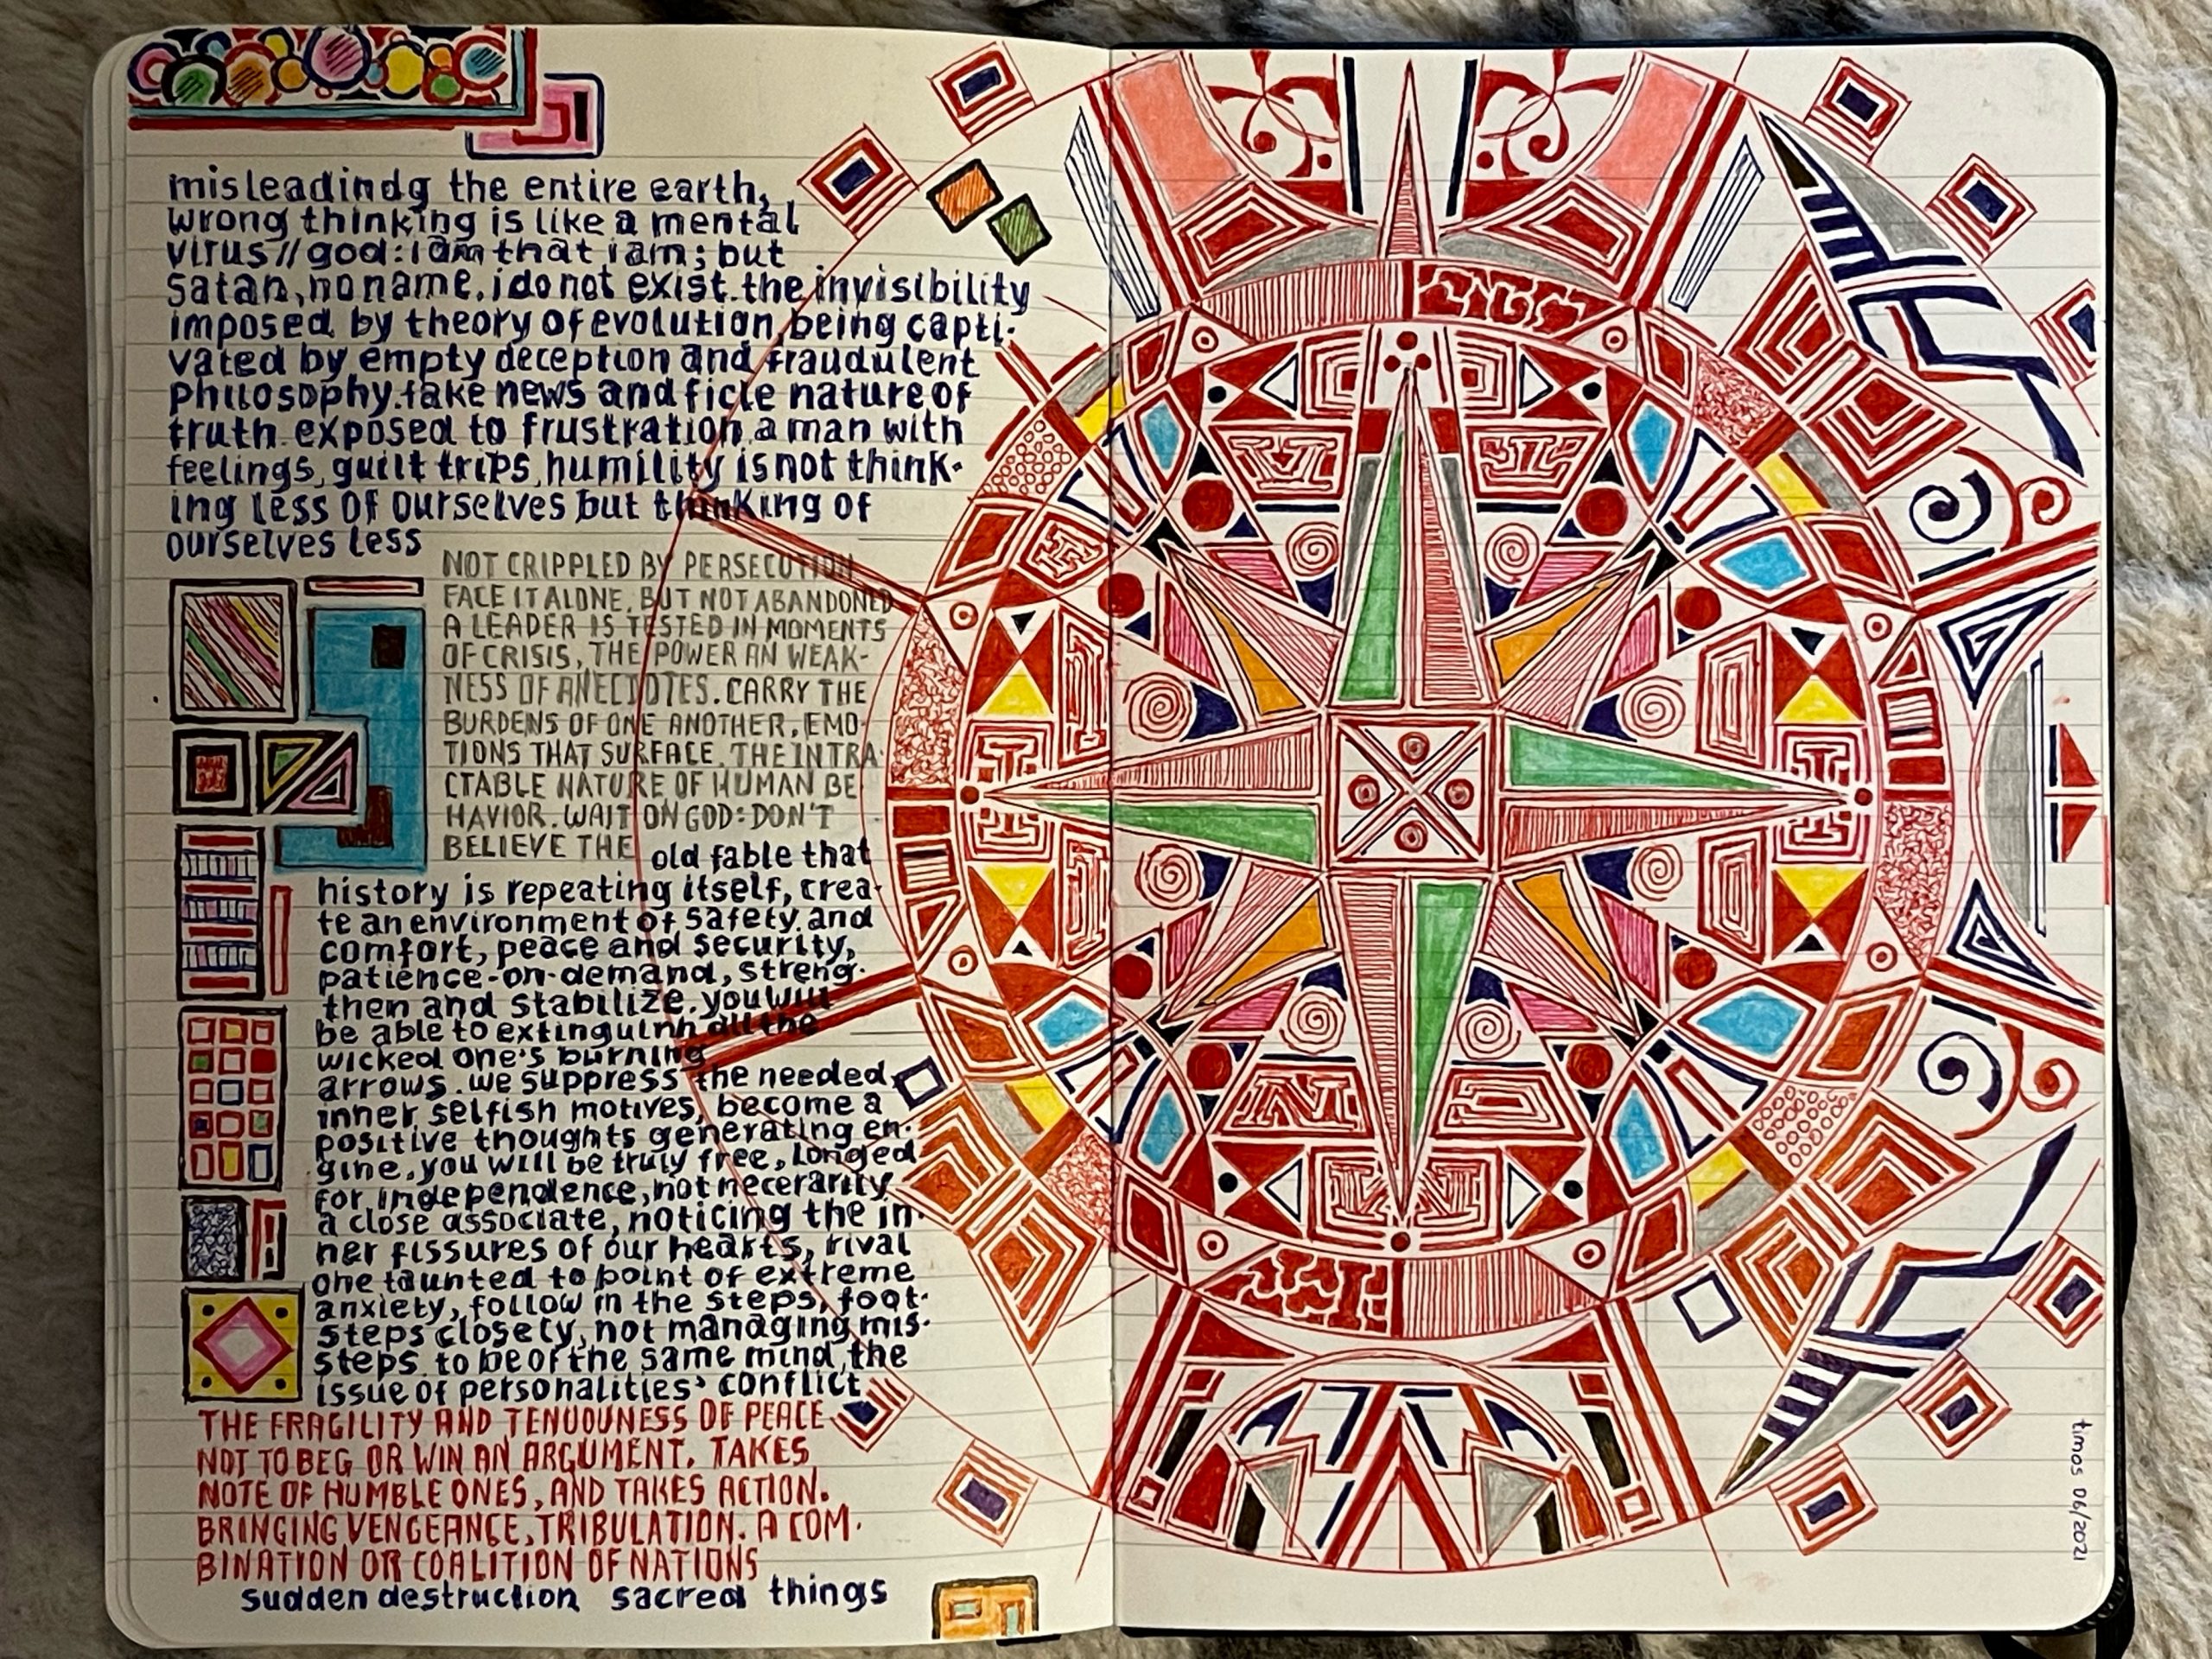 misleadindg the entire earth,
wrong thinking is like a mental
virus//god: i am that i am; but
satan, no name. i do not exist. the invisibility
imposed by theory of evolution, being capti-
vated by empty deception and fraudulent
philosophy. fake news and ficle nature of
truth. exposed to frustration, a man with
feelings, guilt trips, humility is not think-
ing less of ourselves but thinking of
ourselves less
NOT CRIPPLED BY PERSECUTION
FACE IT ALONE, BUT NOT ABANDONED
A LEADER IS TESTED IN MOMENTS
OF CRISIS, THE POWER AN WEAK-
NESS OF ANECDOTES. CARRY THE
BURDENS OF ONE ANOTHER, EMO-
TIONS THAT SURFACE. THE INTRA-
CTABLE NATURE OF HUMAN BE-
HAVIOR. WAIT ON GOD: DON'T
BELIEVE THE old fable that
history is repeating itself, crea-
te an environment of safety and
comfort, peace and security,
patience-on-demand, streng-
then and stabilize. you will
be able to extinguinh all the
wicked one's burning
arrows. we suppress the needed,
inner selfish motives, become a
positive thoughts generating en-
gine, you will be truly free, longed
for independence, not necerarity
a close associate, noticing the in-
ner fissures of our hearts, rival
one taunted to point of extreme
anxiety, follow in the steps, foot-
steps closely, not managing mis-
steps. to be of the same mind, the
issue of personalities' conflict
THE FRAGILITY AND TENUOUNESS OF PEACE
NOT TO BEG OR WIN AN ARGUMENT. TAKES
NOTE OF HUMBLE ONES, AND TAKES ACTION.
BRINGING VENGEANCE, TRIBULATION. A COM-
BINATION OR COALITION OF NATIONS
sudden destruction sacred things
timos 06/2021